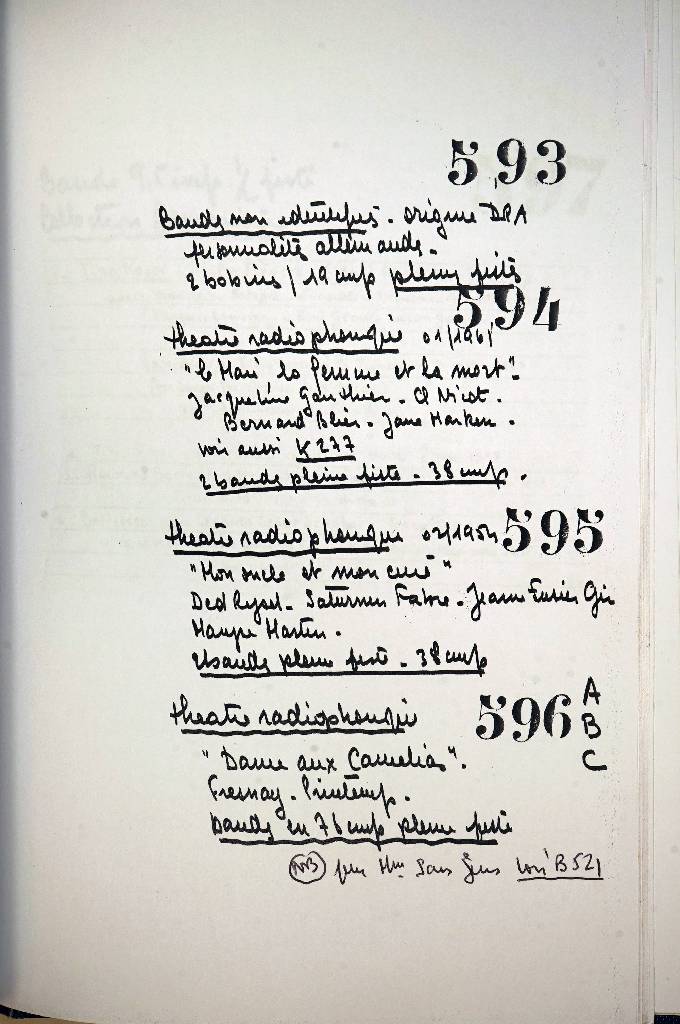 593
Bande non identifiées - origine DRA
personnalités allemande -
2 bobines / 19 cm/s pleine piste
594
theatre radiophonique 01/1961
"le Mari la femme et la mort"-
Jacqueline Gauthier - Cl Nicot -
Bernard Blier - Jane Marken -
voir aussi K 277
2 bande pleine piste - 38 cm/s -
theatre radiophonique 02/1954 595
"Mon oncle et mon curé"
Ded Rysel - Saturnin Fabre - Jeanne Fusier Gir
Marten -
2 bande pleine piste - 38 cm/s
theatre radiophonique 596 A
B
C
"Dame aux Camelias" -
Fresnay - Printemps -
bande en 76 cm/s pleine piste
NB pour Mme Sans Gene voir B 521